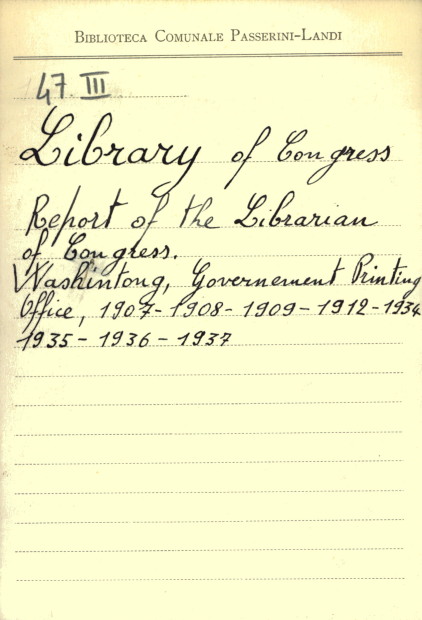 BIBLIOTECA COMUNALE PASSERINI-LANDI
47. III
Library of Congress
Report of the Librarian
of Congress.
Washintong, Governement Printing
Office, 1907 - 1908 - 1909 - 1912 - 1934
1935 - 1936 - 1937